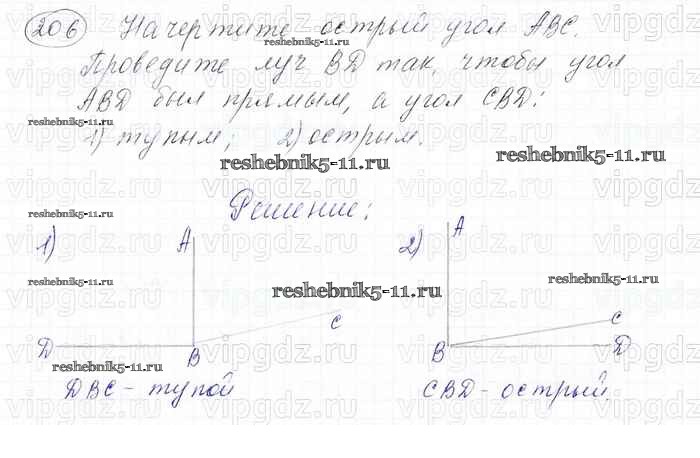 206 Начертите острый угол ABC.
Проведите луч BD так, чтобы угол
ABD был прямым, а угол CBD:
1) тупым; 2) острым.
Решение:
1) A 2) A
C C
D B B D
DBC - тупой CBD - острый.
reshebnik5-11.ru
reshebnik5-11.ru
reshebnik5-11.ru
reshebnik5-11.ru
reshebnik5-11.ru
reshebnik5-11.ru
reshebnik5-11.ru
reshebnik5-11.ru
reshebnik5-11.ru
vipgdz.ru